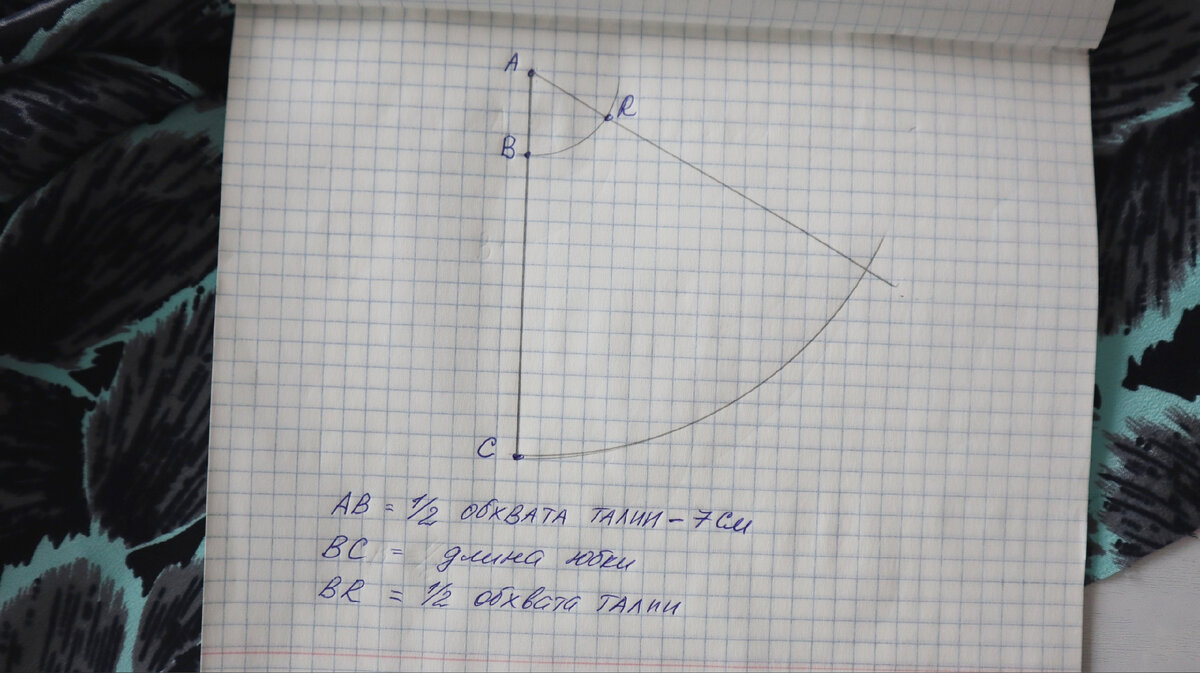 A
R
B
C
AB = 1/2 обхвата талии - 7 см
BC = длина юбки
BR = 1/2 обхвата талии